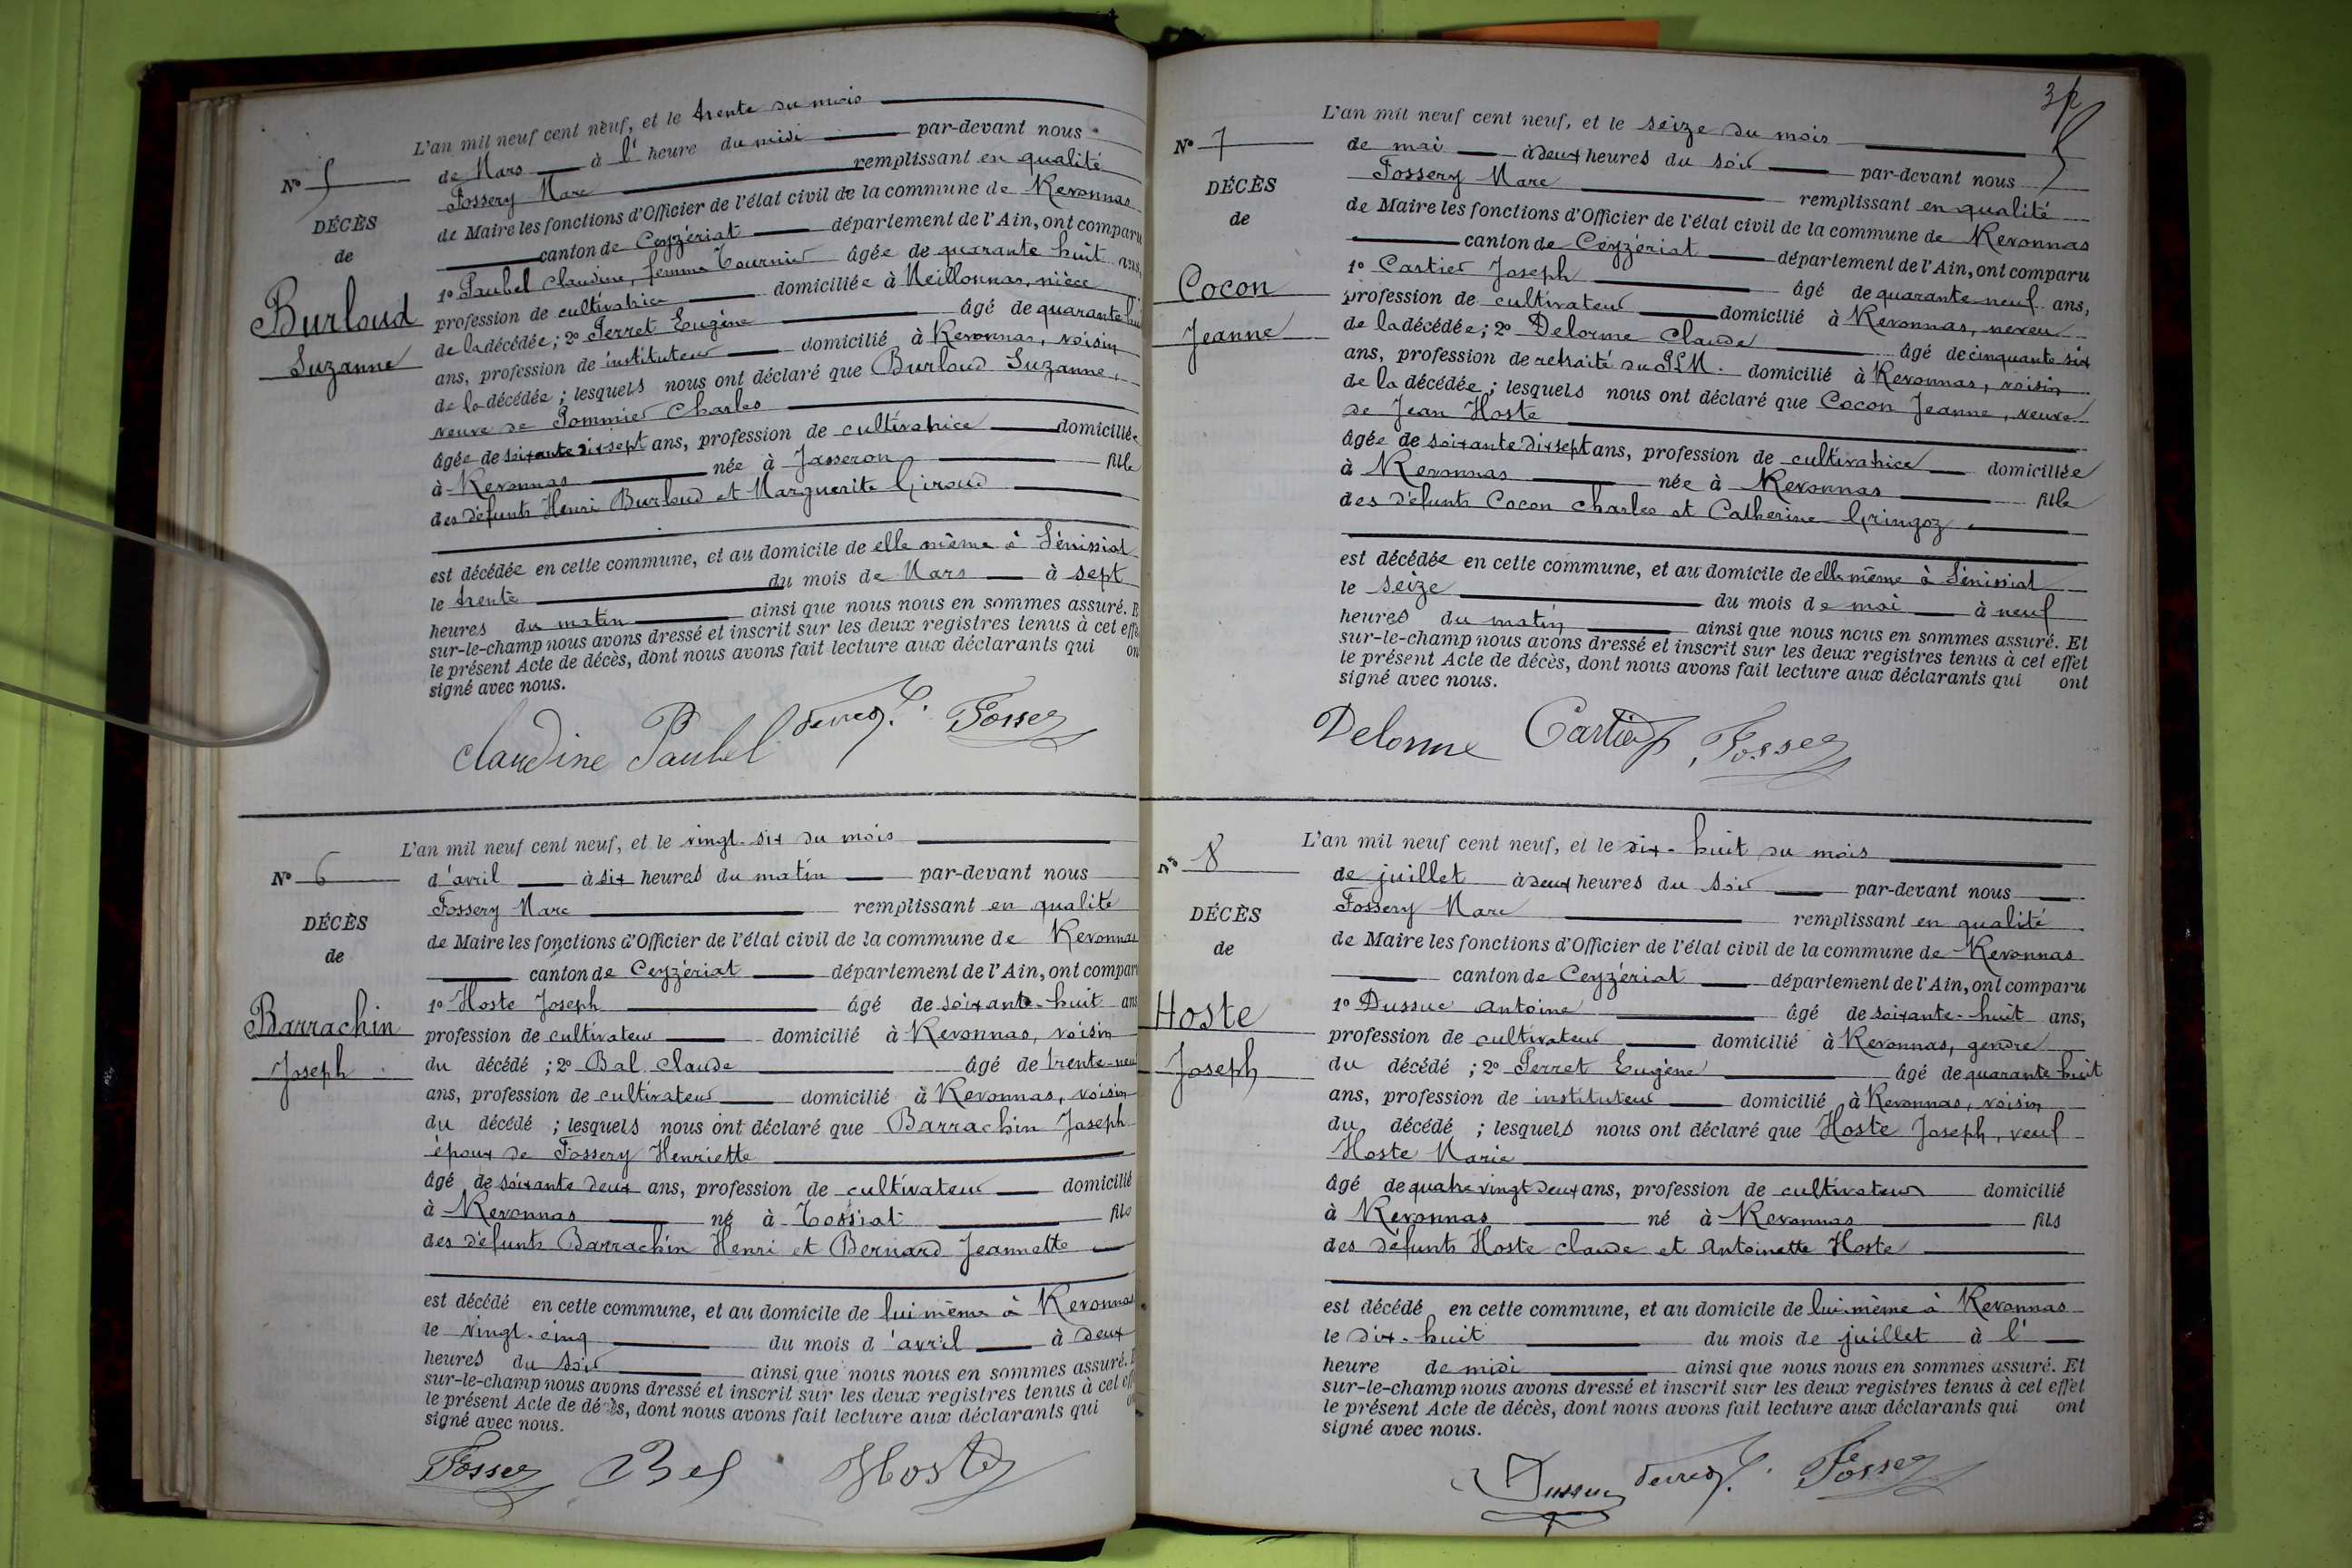 L'an mil neuf cent neuf, et le trente du mois
N° 5
de Mars à l' heure du midi par-devant nous
Fossery Marc remplissant en qualité
DÉCÈS
de Maire les fonctions d'Officier de l'état civil de la commune de Revonnas
de
canton de Ceyzériat département de l'Ain, ont comparu
Burloud
1° Paubel Claudine, femme Tournier âgée de quarante huit ans,
profession de cultivatrice domiciliée à Meillonnas, nièce
Suzanne
de la décédée ; 2° Perret Eugène âgé de quarante hui
ans, profession de instituteur domicilié à Revonnas, voisin
de la décédée ; lesquels nous ont déclaré que Burloud Suzanne,
veuve de Pommier Charles
âgée de soixante dix sept ans, profession de cultivatrice domiciliée
à Revonnas née à Jasseron fille
des défunts Henri Burloud et Marguerite Giroud
est décédée en cette commune, et au domicile de elle même à Sénissiat
le trente du mois de Mars à sept
heures du matin ainsi que nous nous en sommes assuré. E
sur-le-champ nous avons dressé et inscrit sur les deux registres tenus à cet effe
le présent Acte de décès, dont nous avons fait lecture aux déclarants qui on
signé avec nous.
Claudine Paubel Perret E. Fossery
L'an mil neuf cent neuf, et le vingt-six du mois
N° 6
d'avril à six heures du matin par-devant nous
Fossery Marc remplissant en qualité
DÉCÈS
de Maire les fonctions d'Officier de l'état civil de la commune de Revonnas
de
canton de Ceyzériat département de l'Ain, ont compar
Barrachin
1° Hoste Joseph âgé de soixante-huit ans
profession de cultivateur domicilié à Revonnas, voisin
Joseph
du décédé ; 2° Bal Claude âgé de trente-neu
ans, profession de cultivateur domicilié à Revonnas, voisin
du décédé ; lesquels nous ont déclaré que Barrachin Joseph
époux de Fossery Henriette
âgé de soixante deux ans, profession de cultivateur domicilié
à Revonnas né à Tossiat fils
des défunts Barrachin Henri et Bernard Jeannette
est décédé en cette commune, et au domicile de lui même à Revonnas
le vingt-cinq du mois d'avril à deux
heures du soir ainsi que nous nous en sommes assuré. E
sur-le-champ nous avons dressé et inscrit sur les deux registres tenus à cet eff
le présent Acte de décès, dont nous avons fait lecture aux déclarants qui o
signé avec nous.
Fossery Bal Hoste
L'an mil neuf cent neuf, et le seize du mois
N° 7
de mai à deux heures du soir par-devant nous
Fossery Marc remplissant en qualité
DÉCÈS
de Maire les fonctions d'Officier de l'état civil de la commune de Revonnas
de
canton de Ceyzériat département de l'Ain, ont comparu
Cocon
1° Cartier Joseph âgé de quarante-neuf ans,
profession de cultivateur domicilié à Revonnas, neveu
Jeanne
de la décédée ; 2° Delorme Claude âgé de cinquante six
ans, profession de retraité du PLM. domicilié à Revonnas, voisin
de la décédée ; lesquels nous ont déclaré que Cocon Jeanne, veuve
de Jean Hoste
âgée de soixante dix sept ans, profession de cultivatrice domiciliée
à Revonnas née à Revonnas fille
des défunts Cocon Charles et Catherine Gringoz
est décédée en cette commune, et au domicile de elle même à Sénissiat
le seize du mois de mai à neuf
heures du matin ainsi que nous nous en sommes assuré. Et
sur-le-champ nous avons dressé et inscrit sur les deux registres tenus à cet effet
le présent Acte de décès, dont nous avons fait lecture aux déclarants qui ont
signé avec nous.
Delorme Cartier Fossery
L'an mil neuf cent neuf, et le dix-huit du mois
N° 8
de juillet à deux heures du soir par-devant nous
Fossery Marc remplissant en qualité
DÉCÈS
de Maire les fonctions d'Officier de l'état civil de la commune de Revonnas
de
canton de Ceyzériat département de l'Ain, ont comparu
Hoste
1° Dussuc Antoine âgé de soixante-huit ans,
profession de cultivateur domicilié à Revonnas, gendre
Joseph
du décédé ; 2° Perret Eugène âgé de quarante huit
ans, profession de instituteur domicilié à Revonnas, voisin
du décédé ; lesquels nous ont déclaré que Hoste Joseph, veuf
Hoste Marie
âgé de quatre vingt deux ans, profession de cultivateur domicilié
à Revonnas né à Revonnas fils
des défunts Hoste Claude et Antoinette Hoste
est décédé en cette commune, et au domicile de lui même à Revonnas
le dix-huit du mois de juillet à l'
heure de midi ainsi que nous nous en sommes assuré. Et
sur-le-champ nous avons dressé et inscrit sur les deux registres tenus à cet effet
le présent Acte de décès, dont nous avons fait lecture aux déclarants qui ont
signé avec nous.
Dussuc Perret E. Fossery